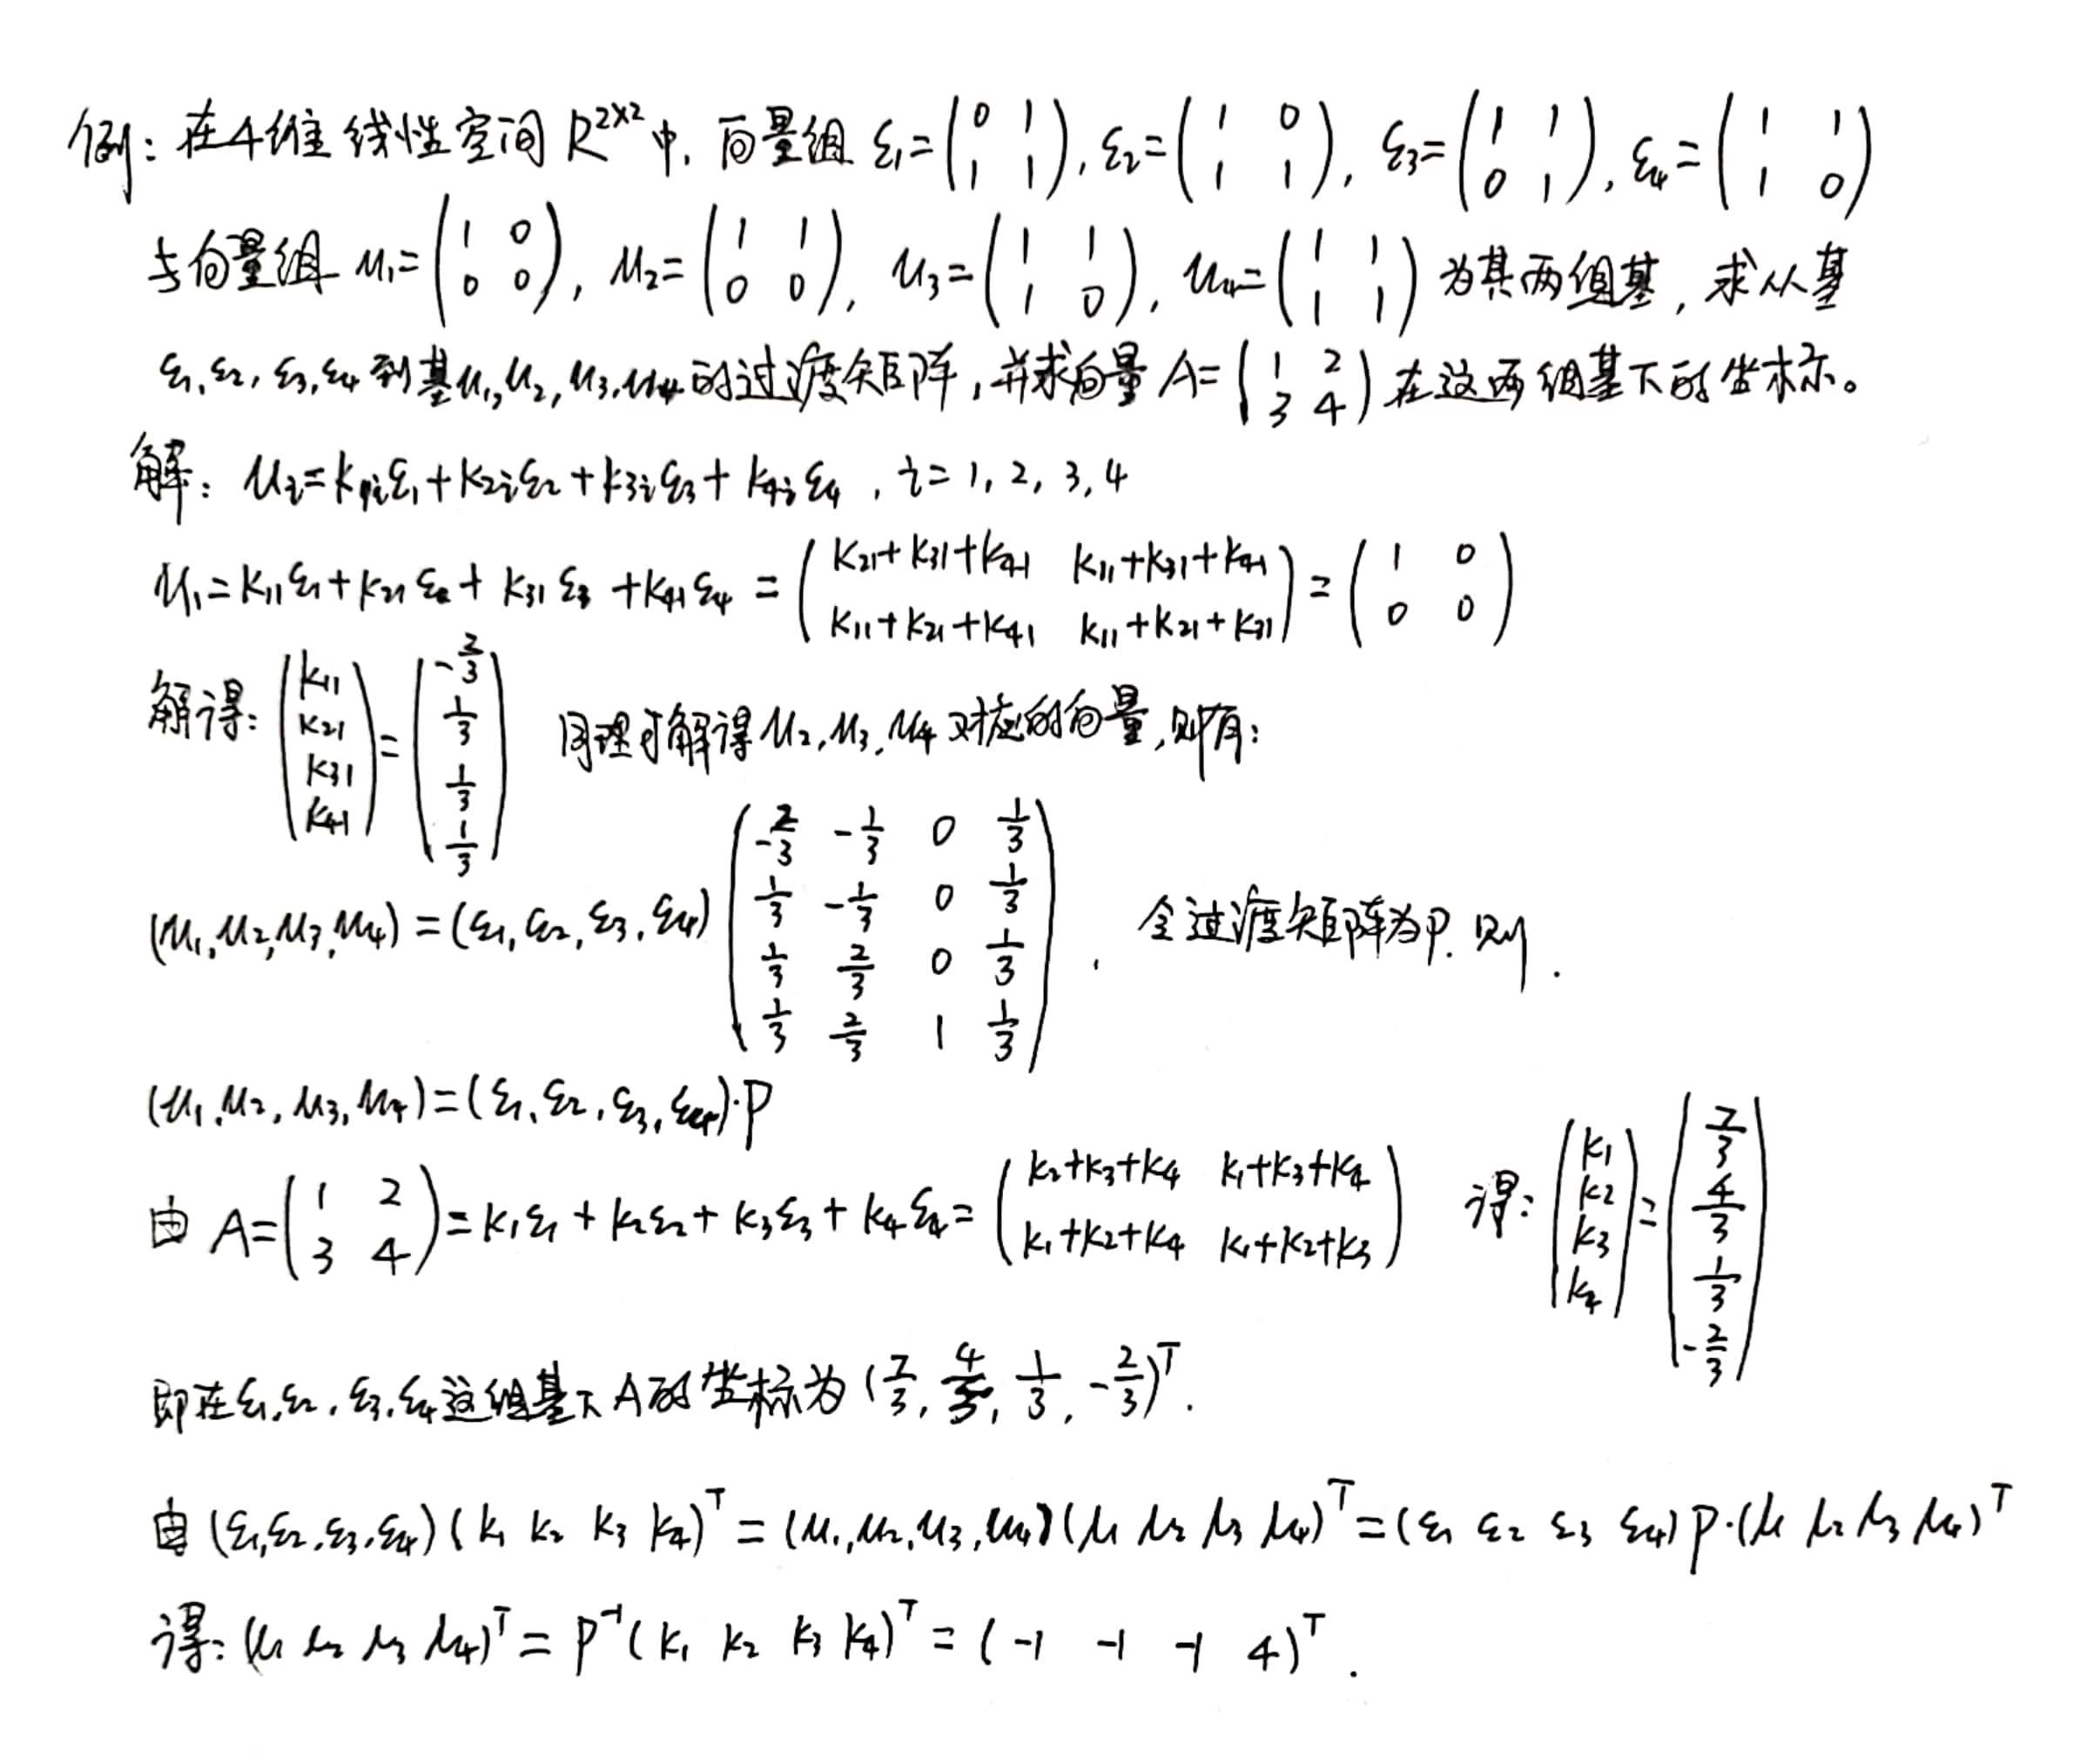 例：在4维线性空间 R^{2×2}中，向量组 ε₁=(0 1; 1 1), ε₂=(1 0; 1 1), ε₃=(1 1; 0 1), ε₄=(1 1; 1 0)
与向量组 μ₁=(1 0; 0 0), μ₂=(1 1; 0 0), μ₃=(1 1; 1 0), μ₄=(1 1; 1 1) 为其两组基，求从基
ε₁,ε₂,ε₃,ε₄到基μ₁,μ₂,μ₃,μ₄的过渡矩阵，并求向量 A=(1 2; 3 4) 在这两组基下的坐标。
解：μᵢ=k₁ᵢε₁+k₂ᵢε₂+k₃ᵢε₃+k₄ᵢε₄，i=1,2,3,4
μ₁=k₁₁ε₁+k₂₁ε₂+k₃₁ε₃+k₄₁ε₄=(k₂₁+k₃₁+k₄₁ k₁₁+k₃₁+k₄₁; k₁₁+k₂₁+k₄₁ k₁₁+k₂₁+k₃₁)=(1 0; 0 0)
解得：(k₁₁; k₂₁; k₃₁; k₄₁)=(-2/3; 1/3; 1/3; 1/3) 同理可解得μ₂,μ₃,μ₄对应的向量,则有：
(μ₁,μ₂,μ₃,μ₄)=(ε₁,ε₂,ε₃,ε₄)(-2/3 -1/3 0 1/3; 1/3 -1/3 0 1/3; 1/3 2/3 0 1/3; 1/3 2/3 1 1/3)，令过渡矩阵为P.则.
(μ₁,μ₂,μ₃,μ₄)=(ε₁,ε₂,ε₃,ε₄)·P
由 A=(1 2; 3 4)=k₁ε₁+k₂ε₂+k₃ε₃+k₄ε₄=(k₂+k₃+k₄ k₁+k₃+k₄; k₁+k₂+k₄ k₁+k₂+k₃) 得：(k₁; k₂; k₃; k₄)=(7/3; 4/3; 1/3; -2/3)
即在ε₁,ε₂,ε₃,ε₄这组基下A的坐标为(7/3, 4/3, 1/3, -2/3)ᵀ.
由(ε₁,ε₂,ε₃,ε₄)(k₁ k₂ k₃ k₄)ᵀ=(μ₁,μ₂,μ₃,μ₄)(μ₁ μ₂ μ₃ μ₄)ᵀ=(ε₁ ε₂ ε₃ ε₄)P·(μ₁ μ₂ μ₃ μ₄)ᵀ
得：(μ₁ μ₂ μ₃ μ₄)ᵀ=P⁻¹(k₁ k₂ k₃ k₄)ᵀ=(-1 -1 -1 4)ᵀ.